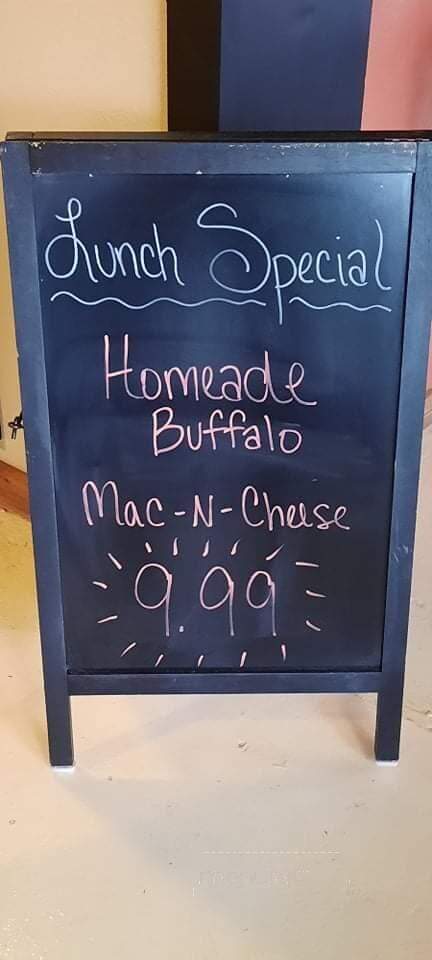 Lunch Special
Homeade
Buffalo
Mac-N-Cheese
9.99